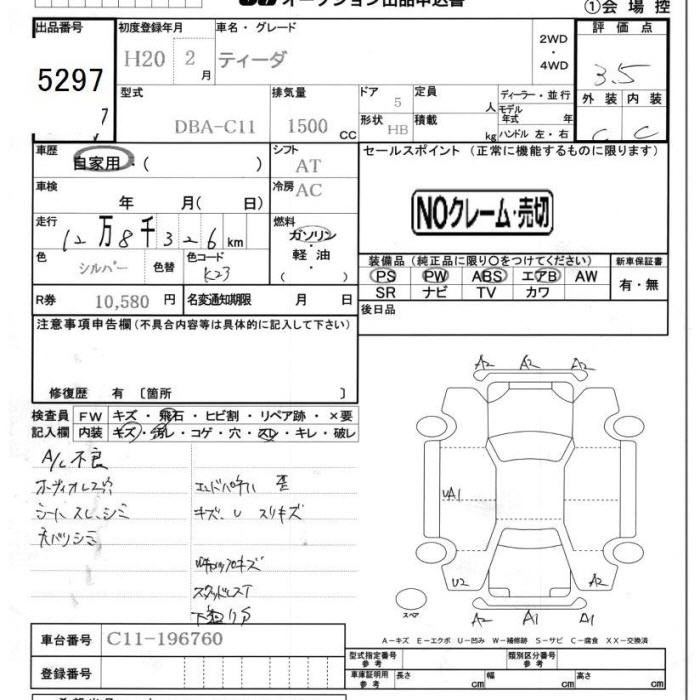 オークション出品申込書
①会場控
出品番号 初度登録年月 車名・グレード 2WD・4WD 評価点
5297 H20 2月 ティーダ 3.5
型式 排気量 ドア 定員 ディーラー・並行 外装 内装
DBA-C11 1500cc 5 人 モデル年式 年 C C
形状 HB 積載 kg ハンドル 左・右
車歴 自家用・( ) シフト AT セールスポイント (正常に機能するものに限ります)
車検 年 月( 日) 冷房 AC
NOクレーム・売切
走行 12万8千326km 燃料 ガソリン・軽油・( )
色 シルバー 色替 色コード K23
装備品(純正品に限り○をつけてください) 新車保証書
PS PW ABS エアB AW 有・無
SR ナビ TV カワ
R券 10,580円 名変通知期限 月 日
後日品
注意事項申告欄(不具合内容等は具体的に記入して下さい)
修復歴 有 〔箇所 〕
検査員 FW キズ・飛石・ヒビ割・リペア跡・×要
記入欄 内装 キズ・汚レ・コゲ・穴・スレ・キレ・破レ
A/C不良
オーディオレス穴
シートスレ、シミ
天バリシミ
エンドパネル 歪
キズ、U スリキズ
スタッドレスT
下廻りサ
A2 A2 A2
UA1
U2 A2
A2 A1 A1
スペア
A-キズ E-エクボ U-凹み W-補修跡 S-サビ C-腐食 XX-交換済
車台番号 C11-196760
型式指定番号 参考 類別区分番号 参考
登録番号
車庫証明用 参考 長さ cm 幅 cm 高さ cm